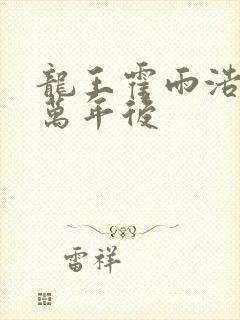 龍王霍雨浩
萬年後
雷祥